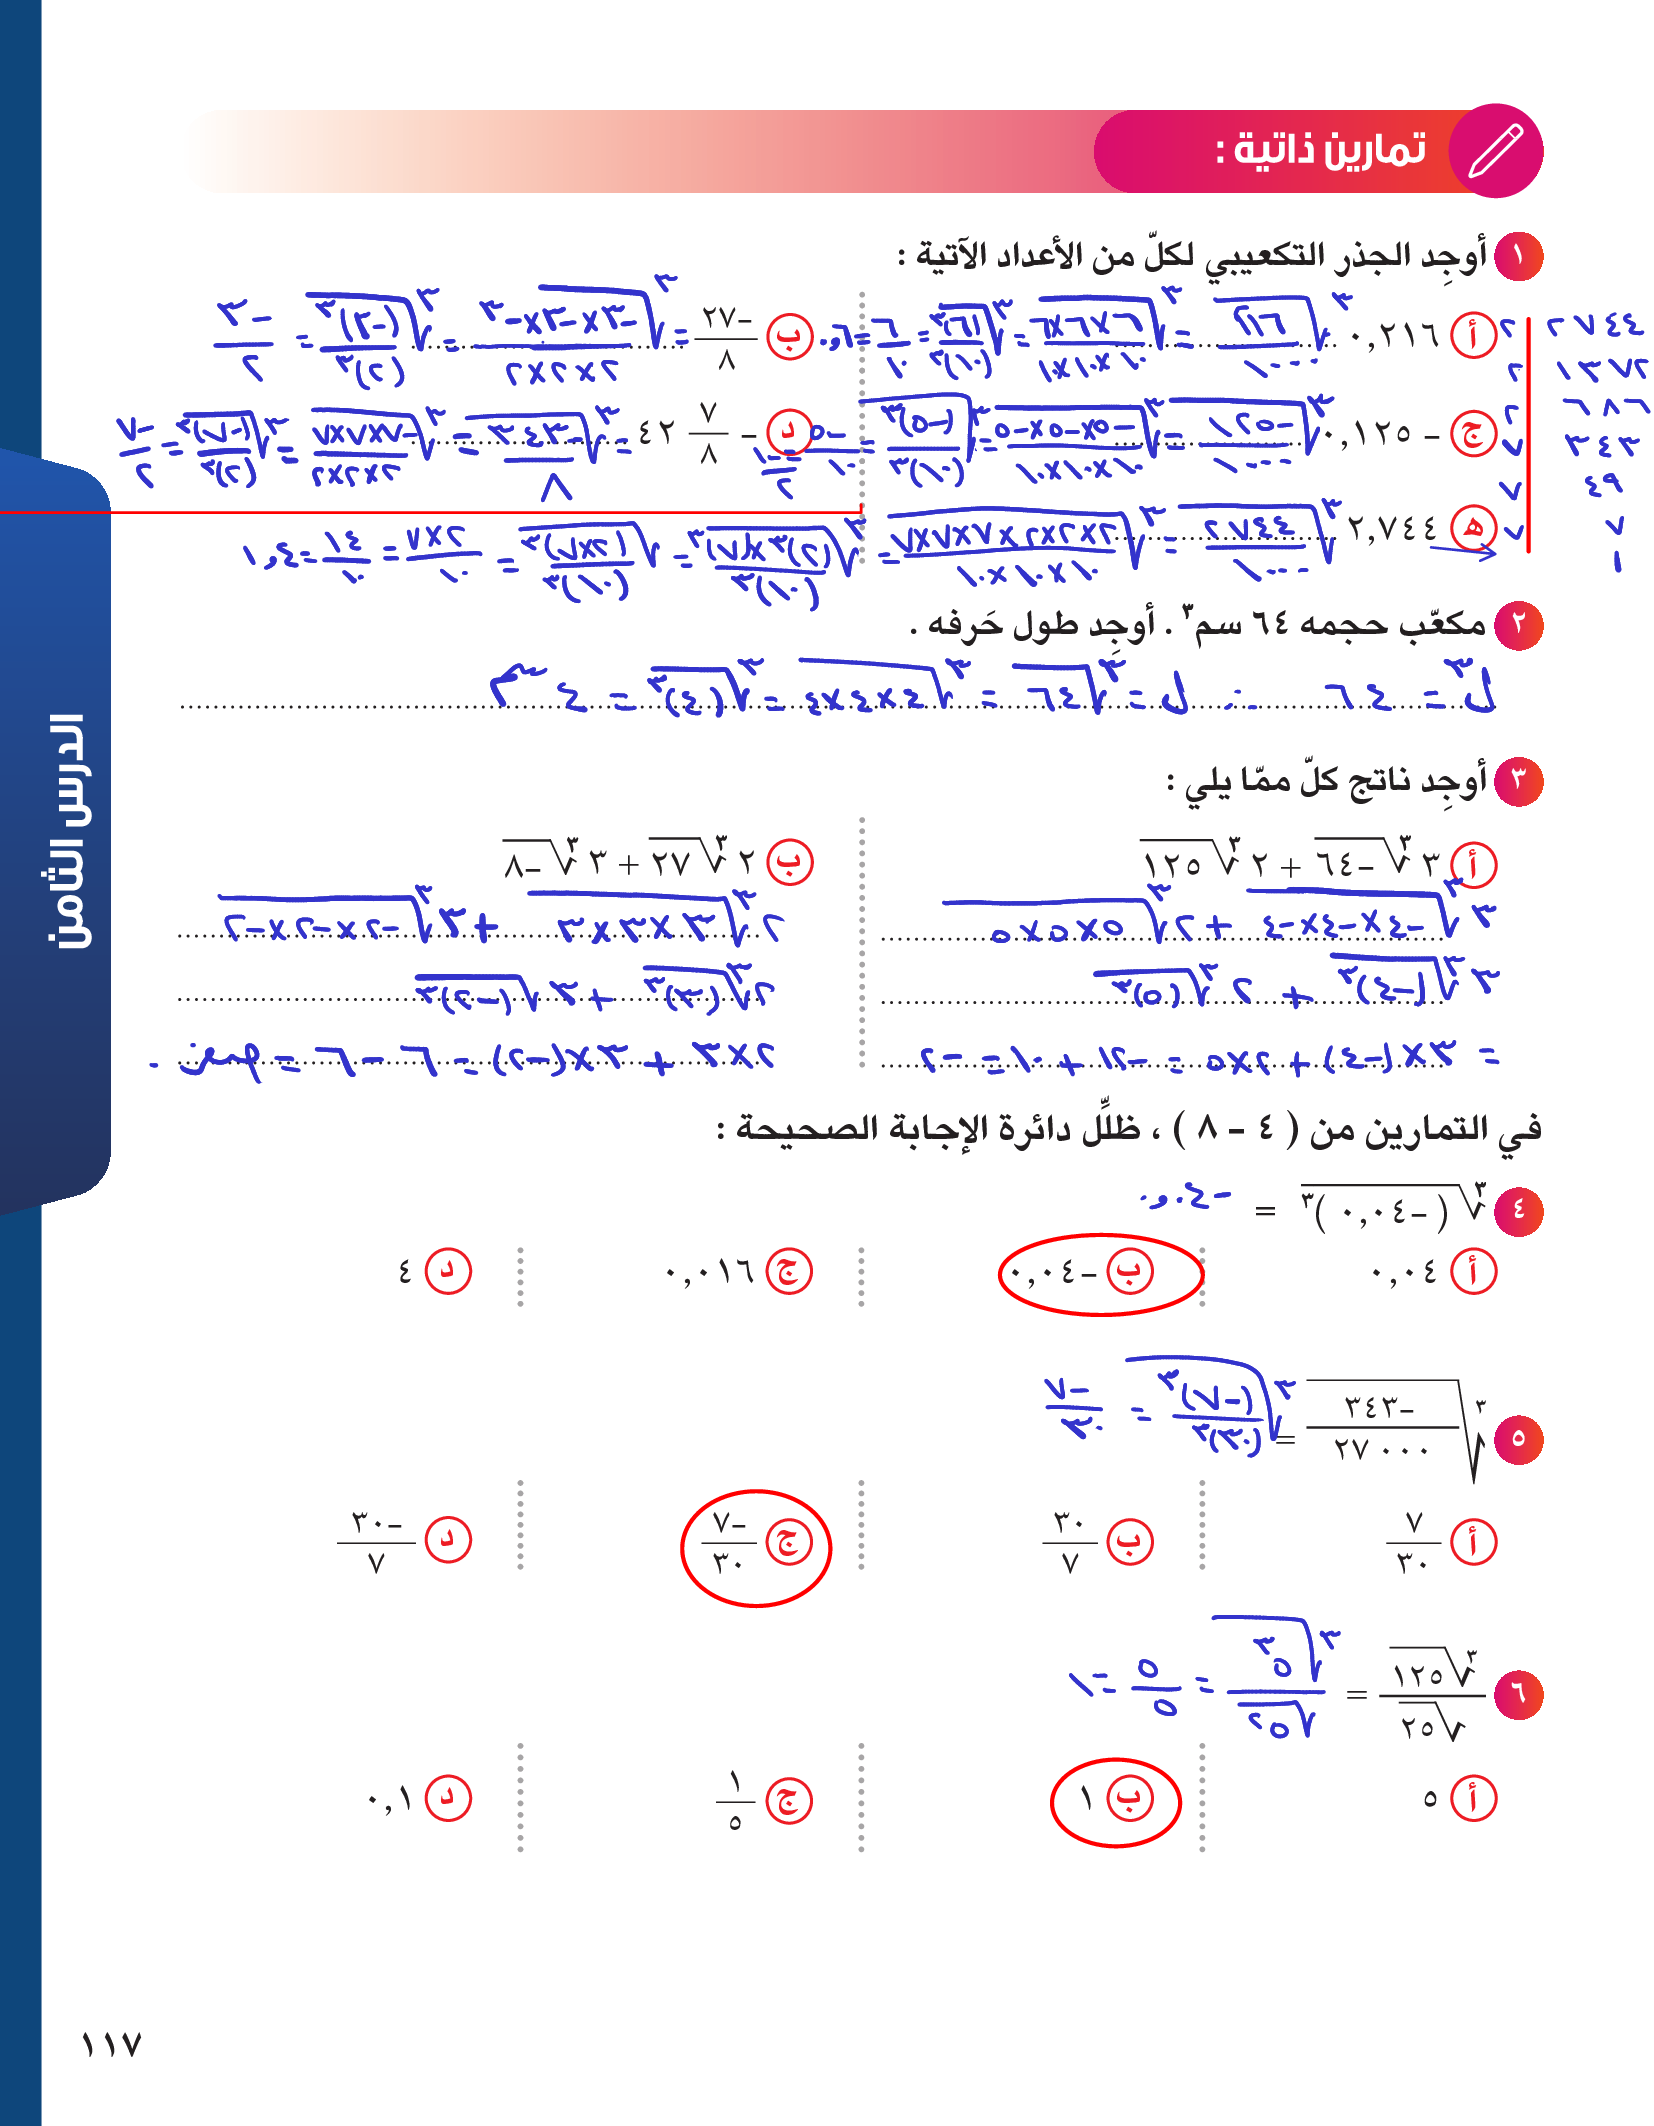 تمارين ذاتية :
١ أوجِد الجذر التكعيبي لكلّ من الأعداد الآتية :
أ ٠,٢١٦ = ∛(٢١٦/١٠٠٠) = ∛(٦×٦×٦/١٠×١٠×١٠) = ∛((٦)٣/(١٠)٣) = ٦/١٠ = ٠,٦
ب −٢٧/٨ = ∛(−٣×−٣×−٣/٢×٢×٢) = ∛((−٣)٣/(٢)٣) = −٣/٢
ج −٠,١٢٥ = ∛(−١٢٥/١٠٠٠) = ∛(−٥×−٥×−٥/١٠×١٠×١٠) = ∛((−٥)٣/(١٠)٣) = −٥/١٠ = −١/٢
د −٤٢ ٧/٨ = ∛(−٣٤٣/٨) = ∛(−٧×٧×٧/٢×٢×٢) = ∛((−٧)٣/(٢)٣) = −٧/٢
هـ ٢,٧٤٤ = ∛(٢٧٤٤/١٠٠٠) = ∛(٢×٢×٢×٧×٧×٧/١٠×١٠×١٠) = ∛((٢)٣×(٧)٣/(١٠)٣) = ∛((٢×٧)٣/(١٠)٣) = ٢×٧/١٠ = ١٤/١٠ = ١,٤
٢٧٤٤ ٢
١٣٧٢ ٢
٦٨٦ ٢
٣٤٣ ٧
٤٩ ٧
٧ ٧
١
٢ مكعّب حجمه ٦٤ سم٣ . أوجِد طول حَرفه .
ل٣ = ٦٤ ∴ ل = ∛٦٤ = ∛(٤×٤×٤) = ∛(٤)٣ = ٤ سم
٣ أوجِد ناتج كلّ ممّا يلي :
أ ٣ ∛−٦٤ + ٢ ∛١٢٥
٣ ∛(−٤×−٤×−٤) + ٢ ∛(٥×٥×٥)
٣ ∛(−٤)٣ + ٢ ∛(٥)٣
= ٣×(−٤) + ٢×٥ = −١٢ + ١٠ = −٢
ب ٢ ∛٢٧ + ٣ ∛−٨
٢ ∛(٣×٣×٣) + ٣ ∛(−٢×−٢×−٢)
٢ ∛(٣)٣ + ٣ ∛(−٢)٣
٢×٣ + ٣×(−٢) = ٦ − ٦ = صفر .
في التمارين من ( ٤ - ٨ ) ، ظلِّل دائرة الإجابة الصحيحة :
٤ ∛(−٠,٠٤)٣ = −٠,٠٤
أ ٠,٠٤ ب −٠,٠٤ ج ٠,٠١٦ د ٤
٥ ∛(−٣٤٣/٢٧٠٠٠) = ∛((−٧)٣/(٣٠)٣) = −٧/٣٠
أ ٧/٣٠ ب ٣٠/٧ ج −٧/٣٠ د −٣٠/٧
٦ ∛١٢٥/√٢٥ = ∛٥٣/√٢٥ = ٥/٥ = ١
أ ٥ ب ١ ج ١/٥ د ٠,١
الدرس الثامن
١١٧